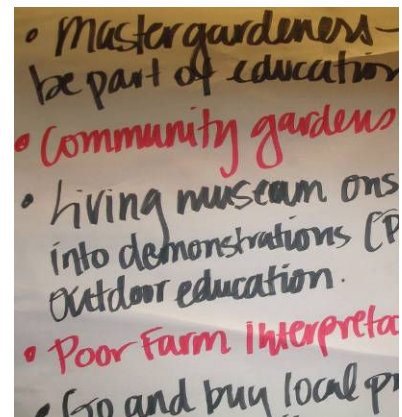 • Mastergardeners -
be part of education
• Community gardens
• Living museum ons
into demonstrations (P
outdoor education.
• Poor Farm Interpreta
• Go and buy local pr